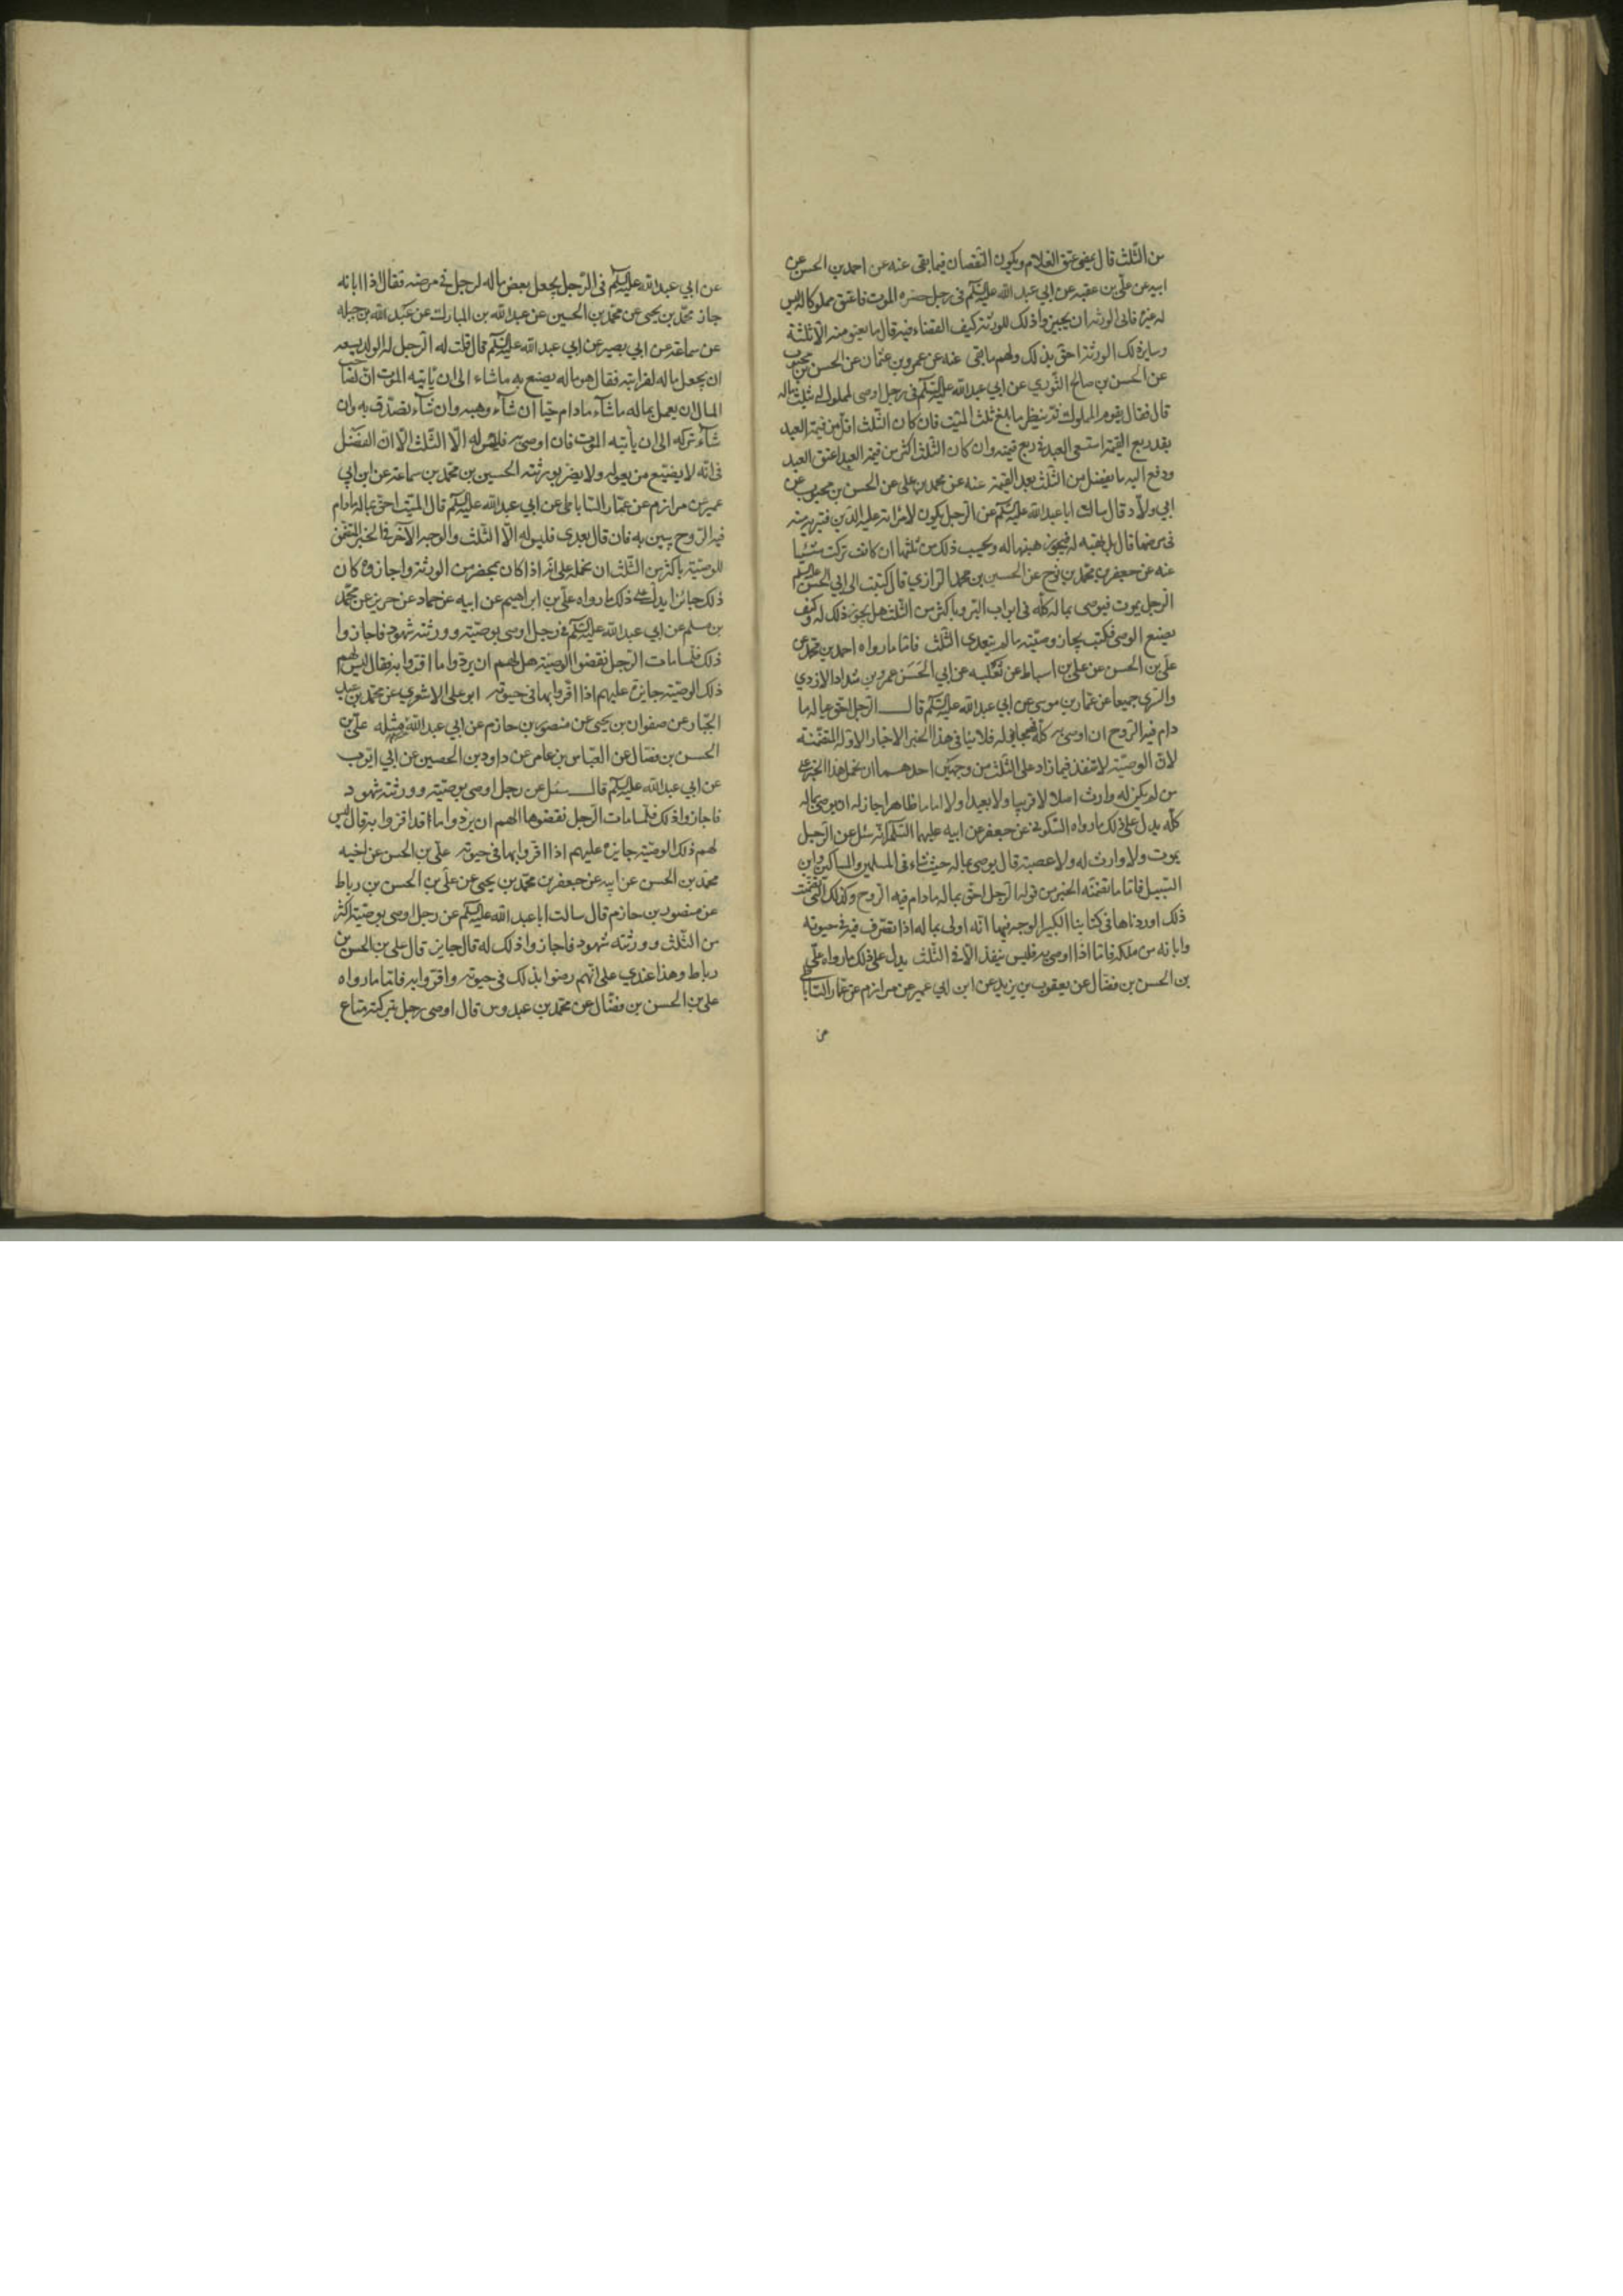 من الثلث قال يمضي عتق الغلام ويكون النقصان فيما بقى عنه عن احمد بن الحسن عن
ابيه عن علي بن عقبه عن ابي عبد الله عليه السلم فى رجل حضره الموت فاعتق مملوكا له ليس
له غيره فابى الورثه ان يجيزوا ذلك للورثة كيف القضاء فيه قال ما يعتق منه الا ثلثة
وساير ذلك الورثة احق بذلك ولهم ما بقى عنه عن عمرو بن عثمان عن الحسن بن محبوب
عن الحسن بن صالح الثوري عن ابي عبد الله عليه السلم فى رجل اوصى لمملوك له بثلث ماله
قال فقال يقوم المملوك ثم ينظر ما بلغ ثلث الميت فان كان الثلث اقل من قيمة العبد
بقدر ربع القيمة استسعى العبد فى ربع قيمته وان كان الثلث اكثر من قيمة العبد اعتق العبد
ودفع اليه ما يفضل من الثلث بعد القيمة عنه عن محمد بن علي عن الحسن بن محبوب عن
ابي ولاد قال سالت ابا عبد الله عليه السلم عن الرجل يكون لامراته عليه الدين فتبريه منه
فى مرضها قال بل تهبه له فيجوز هبتها له ويحسب ذلك من ثلثها ان كانت تركت شيئا
عنه عن جعفر بن محمد بن نوح عن الحسين بن محمد الرازي قال كتبت الى ابي الحسن عليه السلم
الرجل يموت فيوصى بماله كله فى ابواب البر وباكثر من الثلث هل يجوز ذلك له وكيف
يصنع الوصى فكتب يجاز وصيته ما لم يتعدى الثلث فاما ما رواه احمد بن محمد عن
علي بن الحسن عن علي بن اسباط عن ثعلبه عن ابي الحسن عمرو بن شداد الازدي
والسرى جميعا عن عمار بن موسى عن ابي عبد الله عليه السلم قال الرجل احق بماله ما
دام فيه الروح ان اوصى به كله فهو جايز له فلا ينافى هذا الخبر الاخبار الاوله المتضمنة
لان الوصية لا تنفذ فيما زاد على الثلث من وجهين احدهما ان نحمل هذا الخبر على
من لم يكن له وارث اصلا لا قريبا ولا بعيدا ولا اماما ظاهرا جاز له ان يوصى بماله
كله يدل على ذلك ما رواه السكونى عن جعفر عن ابيه عليهما السلم انه سئل عن الرجل
يموت ولا وارث له ولا عصبة قال يوصى بماله حيث شاء فى المسلمين والمساكين وابن
السبيل فاما ما تضمنه الخبر من قوله الرجل احق بماله ما دام فيه الروح وكذلك التي تضمنت
ذلك اوردناها فى كتابنا الكبير الوجه فيها انه اولى بماله اذا تصرف فيه فى حيوته
وابانه من ملكه فاما اذا اوصى به فليس ينفذ الا فى الثلث يدل على ذلك ما رواه علي
بن الحسن بن فضال عن يعقوب بن يزيد عن ابن ابي عمير عن مرازم عن عمار الساباطى
عن
عن ابي عبد الله عليه السلم فى الرجل يجعل بعض ماله لرجل فى مرضه فقال اذا ابانه
جاز محمد بن يحيى عن محمد بن الحسين عن عبد الله بن المبارك عن عبد الله بن جبله
عن سماعة عن ابي بصير عن ابي عبد الله عليه السلم قال قلت له الرجل له الولد يسعه
ان يجعل ماله لقرابته فقال هو ماله يصنع به ما شاء الى ان ياتيه الموت ان لصاحب
المال ان يعمل بماله ما شآء ما دام حيا ان شآء وهبه وان شآء تصدق به وان
شآء تركه الى ان ياتيه الموت فان اوصى به فليس له الا الثلث الا ان الفضل
فى انه لا يضيع من يعوله ولا يضر بورثته الحسين بن محمد بن سماعة عن ابن ابي
عمير عن مرازم عن عمار الساباطى عن ابي عبد الله عليه السلم قال الميت احق بماله ما دام
فيه الروح يبين به فان قال بعدى فليس له الا الثلث والوجه الآخر فى الخبر المتضمن
للوصية باكثر من الثلث ان نحمله على انه اذا كان بمحضر من الورثة واجازوه كان
ذلك جائزا يدل على ذلك ما رواه علي بن ابراهيم عن ابيه عن حماد عن حريز عن محمد
بن مسلم عن ابي عبد الله عليه السلم فى رجل اوصى بوصيته وورثته شهود فاجازوا
ذلك فلما مات الرجل نقضوا الوصية هل لهم ان يردوا ما اقروا به فقال ليس لهم
ذلك الوصية جايزة عليهم اذا اقروا بها فى حيوته ابو علي الاشعري عن محمد بن عبد
الجبار عن صفوان بن يحيى عن منصور بن حازم عن ابي عبد الله مثله علي بن
الحسن بن فضال عن العباس بن عامر عن داود بن الحصين عن ابي ايوب
عن ابي عبد الله عليه السلم قال سئل عن رجل اوصى بوصيته وورثته شهود
فاجازوا ذلك فلما مات الرجل نقضوها الهم ان يردوا ما قد اقروا به قال ليس
لهم ذلك الوصية جايزة عليهم اذا اقروا بها فى حيوته علي بن الحسن عن اخيه
محمد بن الحسن عن ابيه عن جعفر بن محمد بن يحيى عن علي بن الحسن بن رباط
عن منصور بن حازم قال سالت ابا عبد الله عليه السلم عن رجل اوصى بوصيته اكثر
من الثلث وورثته شهود فاجازوا ذلك له قال جايز قال علي بن الحسن بن
رباط وهذا عندي على انهم رضوا بذلك فى حيوته واقروا به فاما ما رواه
علي بن الحسن بن فضال عن محمد بن عبدوس قال اوصى رجل بتركته متاع